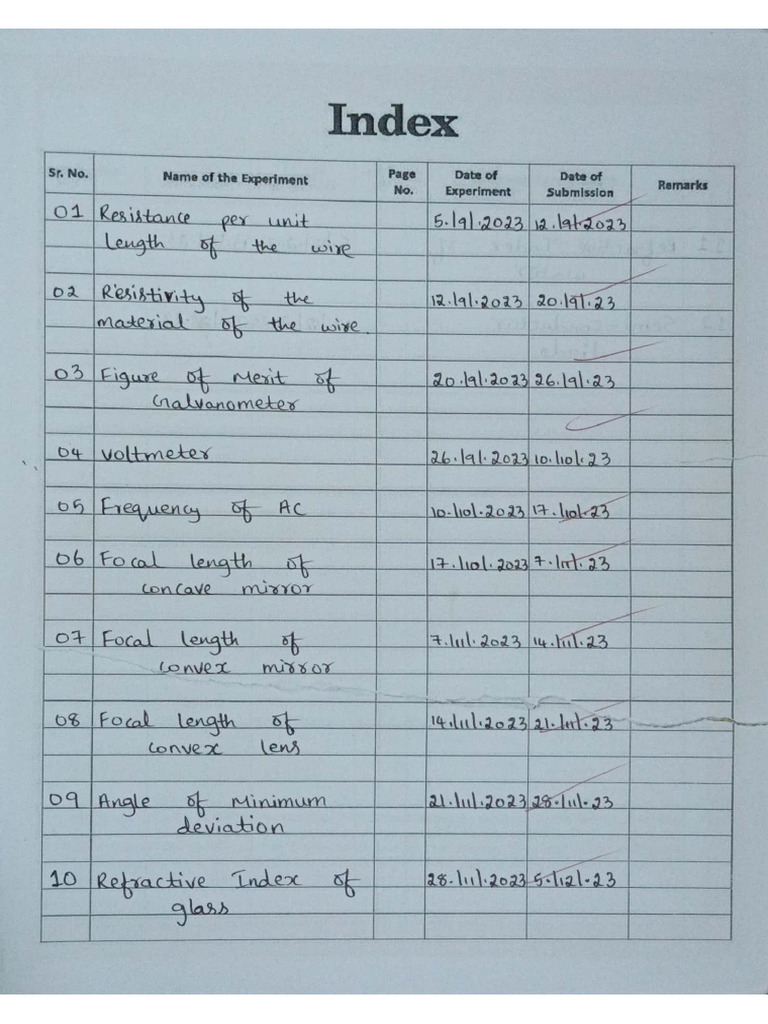 Index
Sr. No. Name of the Experiment Page No. Date of Experiment Date of Submission Remarks
01 Resistance per unit 5.|9|.2023 12.|9|.2023
length of the wire
02 Resistivity of the 12.|9|.2023 20.|9|.23
material of the wire.
03 Figure of Merit of 20.|9|.2023 26.|9|.23
Galvanometer
04 voltmeter 26.|9|.2023 10.|10|.23
05 Frequency of AC 10.|10|.2023 17.|10|.23
06 Focal length of 17.|10|.2023 7.|11|.23
concave mirror
07 Focal length of 7.|11|.2023 14.|11|.23
convex mirror
08 Focal length of 14.|11|.2023 21.|11|.23
convex lens
09 Angle of Minimum 21.|11|.2023 28.|11|.23
deviation
10 Refractive Index of 28.|11|.2023 5.|12|.23
glass